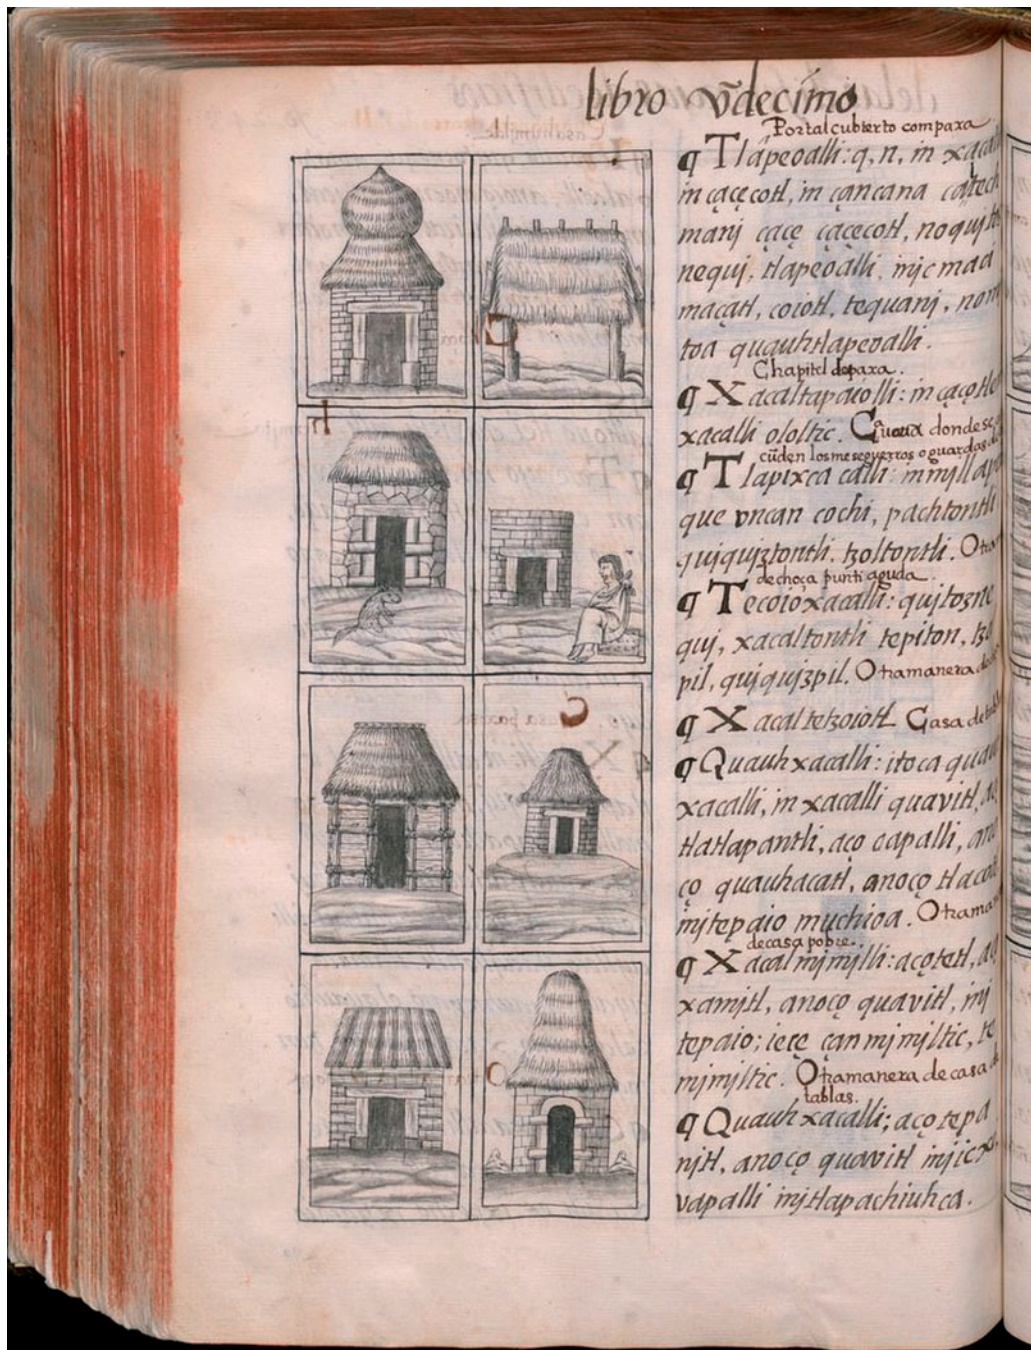 libro vndecimo
Portal cubierto com paxa
¶ Tlapeoalli: q, n, in xacalli
in çaçecotl, in çancana ca, tech
manj çaçe çaçecotl, no quitoz
nequj, tlapeoalli, injc mad
maçatl, coiotl, tequanj,
toa quauhtlapeoalli.
Chapitel de paxa.
¶ Xacaltapaiolli: in
xacalli ololtic. Casa donde se
¶ Tlapixca calli: in mjllapix
que vncan cochi, pachtontli
quiquiztontli, tzoltontli. Otra
de choça punti aguda.
¶ Tecoioxacalli: quitozne
quj, xacaltontli tepiton, tzo
pil, quiquizpil. Otra manera de
¶ Xacaltetzoiotl. Casa de tablas
¶ Quauhxacalli: itoca quauh
xacalli, in xacalli quavitl, aço
tlatlapantli, aço oapalli, ano
ço quauhacatl, anoço tlacotl
injtepaio muchioa. Otra manera
de casa pobre.
¶ Xacalmjmjlli: aço tetl, aço
xamjtl, anoço quavitl, inj
tepaio; iece çan mjmjltic, te
mjmjltic. Otra manera de casa de
tablas.
¶ Quauhxacalli; aço tepa
njtl, anoço quavitl injc
vapalli injtlapachiuhca.